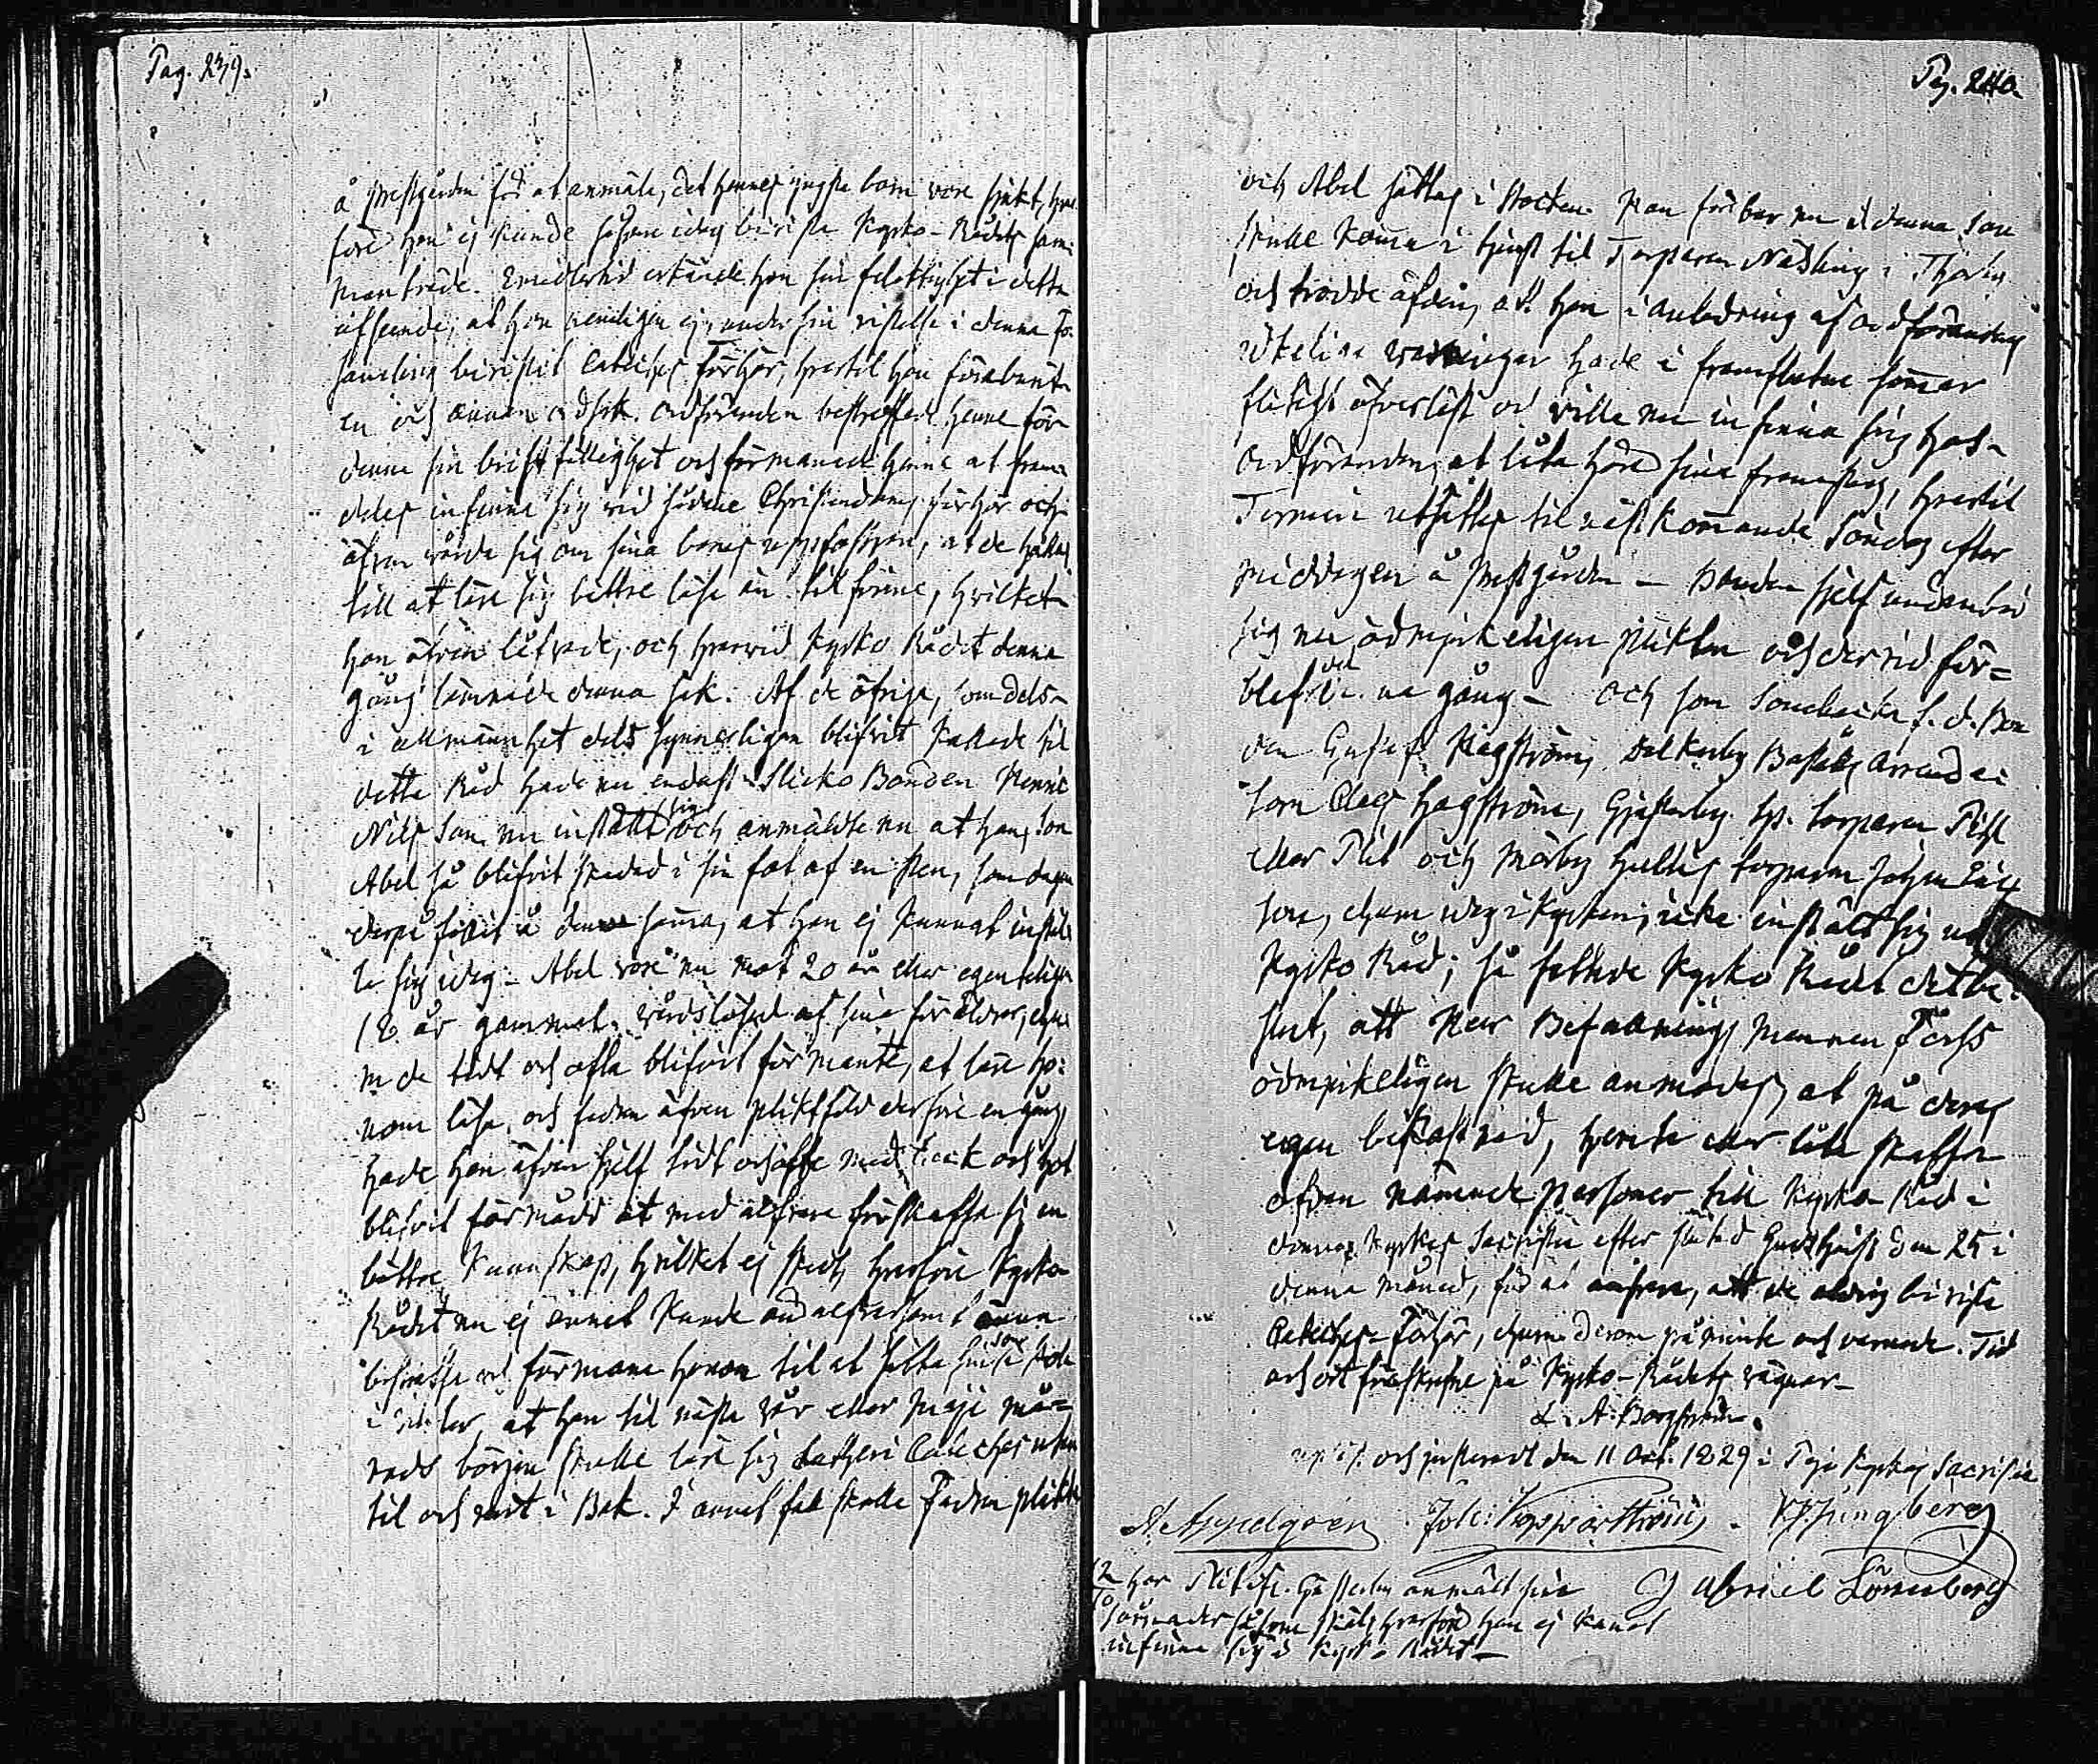 Pag. 239.
å prestgården för at anmäla, det hennes yngsta barn vore sjukt, hvar
före hon ej kunde såsom idag bevista Kyrko-Rådets sam
manträde. Emedlertid erkände hon sin felaktighet i detta
afseende, at hon nemligen ej under sin vistelse i denna För
samling bevistat Cateches förhör, hvartil hon förebar
en och annan orsak. Ordföranden bestraffade henne för
denna sin bristfällighet och förmanade henne at fram
deles infinna sig vid sådane Christendoms förhör och
äfven vårda sig om sina barns uppfostran, at de hållas
till at lära sig bättre läsa än tilförene, hvilket
hon äfven låfvade, och hvarvid Kyrko Rådet denna
gång lämnade denna sak. Af de öfriga, som dels
i allmänhet dels synnerligen blifvit kallade til
detta Råd hade nu endast Slicko Bonden Henric
Nils Son nu inställt sig och anmälte nu at hans Son
Abel så blifvit skadad i sin fot af en sten, som dagen
derpå fallit å densamma, at han ej kunnat instäl
la sig idag. Abel vore nu mot 20 år eller egenteligen
18 år gammal, vårdslösad af sina föräldrar, ehu
ru de tidt och ofta blifvit förmante, at lära ho
nom läsa, och fadren äfven pliktfäld derföre en gång
hade han äfven sjelf tidt och ofta med och hot
blifvit förmådd at med alfvare förskaffa sig en
bättre kunskap, hvilket ej skedt, hvarföre Kyrko
Rådet nu ej annat kunde än alfvarsamt
bestraffa och förmana honom til at
at han til nästa vår eller Maji må
nads början skulle lära sig Lutheri Cateches utan
til och rent i Bok. I annat fall skulle Fadren plikta
Pag. 240.
och Abel sättas i stocken. Han förebar nu at denna Son
skulle komma i tjenst til Torparen Nädling i
och trodde äfven, at han i anledning af ordförandens
varningar hade i framflutne sommar
flitigt öfverläst och ville nu infinna sig hos
Ordföranden, at låta höra sina framsteg, hvartil
Termin utsättes til nästkommande Söndag efter
middagen å prestgården — Bonden sjelf undanbad
sig nu ödmjukeligen plikten och dervid för=
blef det denna gång — Och som f. d. Bon
den Gustaf Hägström, Dalkarby Boställs Arrenda
torn Clas Hagström, Gjesterby by torparen
eller och Mörby Hultes torparen Johan
son, ehuru idag i kyrkan, icke instält sig
Kyrko Råd; så fattade Kyrko Rådet det be
slut, att Herr Befallnings Mannen Forss
ödmjukeligen skulle anmodas, at på deras
egen bekostnad, hemta eller låta skaffa
ofvan nämnde personer till Kyrko Råd i
denna Kyrkas Sacristia efter slutad Gudstjenst den 25 i
denna månad, för at ansvara, att de aldrig bevista
Catechis-Förhör, ehuru derom påminte och varnade. Tid
och ort förutskrefne på Kyrko-Rådets vägnar —
L. A. Borgström.
Upläst och justeradt den 11 Oct. 1829 i Tenala Kyrkas Sacristia
A. Appelgren Joh: Kopparström . K. H. Ljungberg
12/10 har Gästerby anmält sina Gabriel Lönnberg
såsom skäl, hvarföre han ej kunnat
infinna sig i Kyrko Rådet —